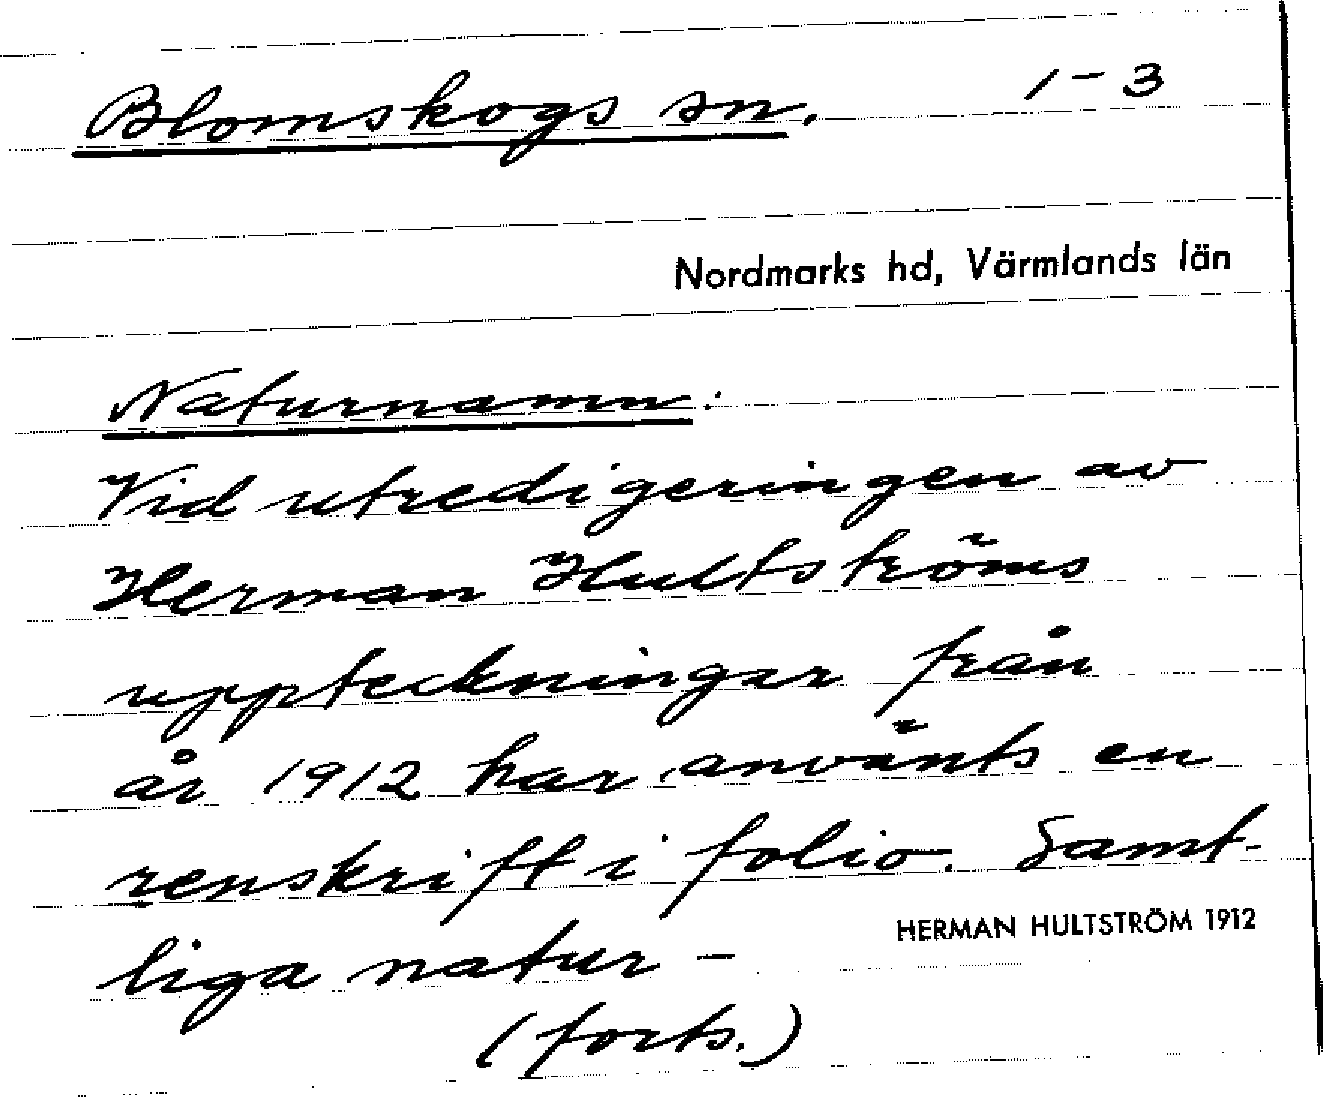 Blomskogs sn. 1-3
Nordmarks hd, Värmlands län
Naturnamn:
Vid utredigeringen av
Herman Hultströms
uppteckningar från
år 1912 har använts en
renskrift i folio. Samt-
liga natur-
HERMAN HULTSTRÖM 1912
(forts.)